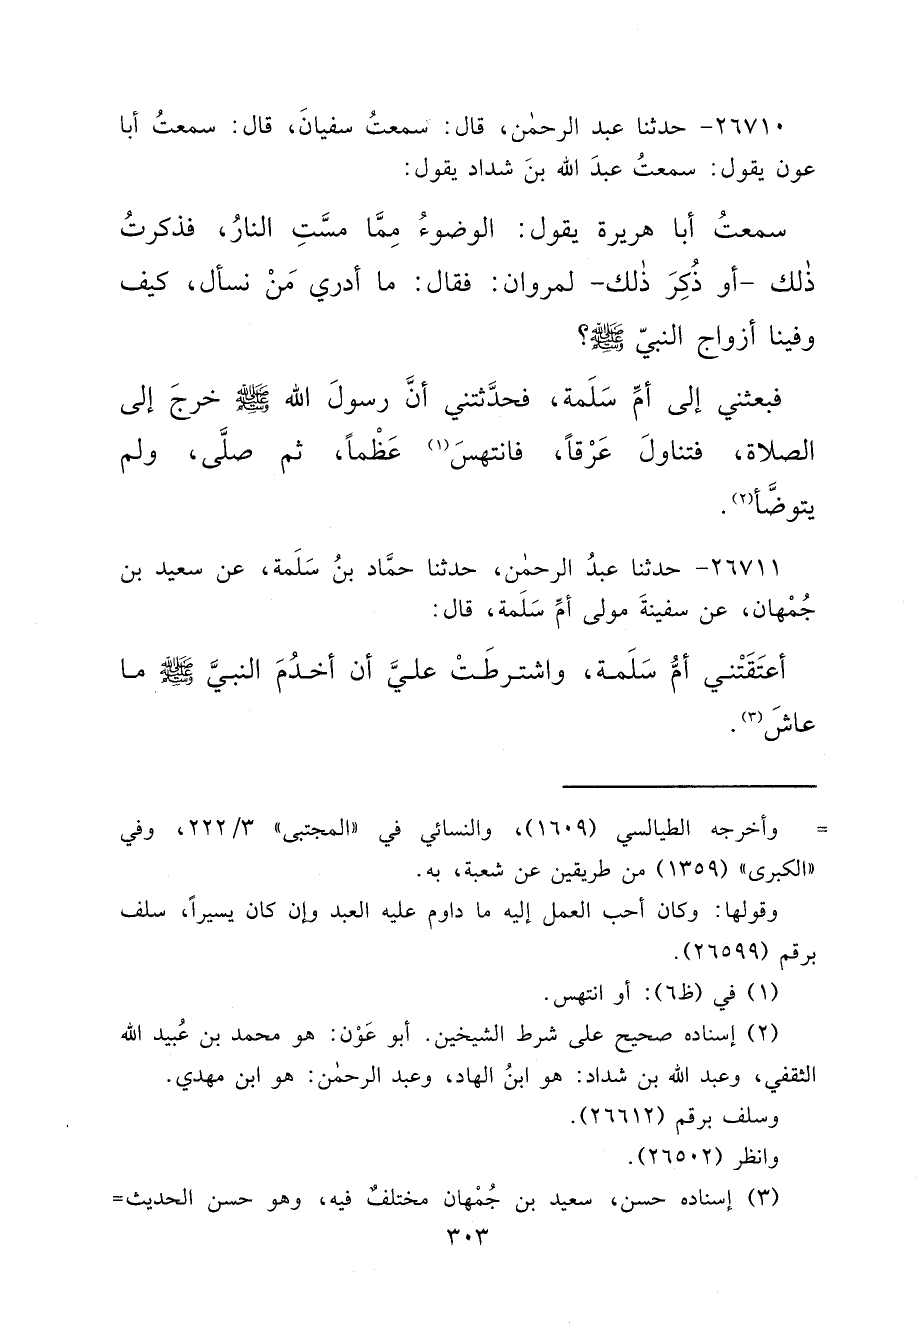 ٢٦٧١٠- حدثنا عبد الرحمٰن، قال: سمعتُ سفيانَ، قال: سمعتُ أبا
عون يقول: سمعتُ عبدَ الله بنَ شداد يقول:
سمعتُ أبا هريرة يقول: الوضوءُ مِمَّا مسَّتِ النارُ، فذكرتُ
ذٰلك -أو ذُكِرَ ذٰلك- لمروان: فقال: ما أدري مَنْ نسأل، كيف
وفينا أزواج النبيّ ﷺ؟
فبعثني إلى أمِّ سَلَمة، فحدَّثتني أنَّ رسولَ الله ﷺ خرجَ إلى
الصلاة، فتناولَ عَرْقاً، فانتهسَ(١) عَظْماً، ثم صلَّى، ولم
يتوضَّأ(٢).
٢٦٧١١- حدثنا عبدُ الرحمٰن، حدثنا حمَّاد بنُ سَلَمة، عن سعيد بن
جُمْهان، عن سفينةَ مولى أمِّ سَلَمة، قال:
أعتَقَتْني أمُّ سَلَمة، واشترطَتْ عليَّ أن أخدُمَ النبيَّ ﷺ ما
عاشَ(٣).
= وأخرجه الطيالسي (١٦٠٩)، والنسائي في «المجتبى» ٢٢٢/٣، وفي
«الكبرى» (١٣٥٩) من طريقين عن شعبة، به.
وقولها: وكان أحب العمل إليه ما داوم عليه العبد وإن كان يسيراً، سلف
برقم (٢٦٥٩٩).
(١) في (ظ٦): أو انتهس.
(٢) إسناده صحيح على شرط الشيخين. أبو عَوْن: هو محمد بن عُبيد الله
الثقفي، وعبد الله بن شداد: هو ابنُ الهاد، وعبد الرحمٰن: هو ابن مهدي.
وسلف برقم (٢٦٦١٢).
وانظر (٢٦٥٠٢).
(٣) إسناده حسن، سعيد بن جُمْهان مختلفٌ فيه، وهو حسن الحديث=
٣٠٣